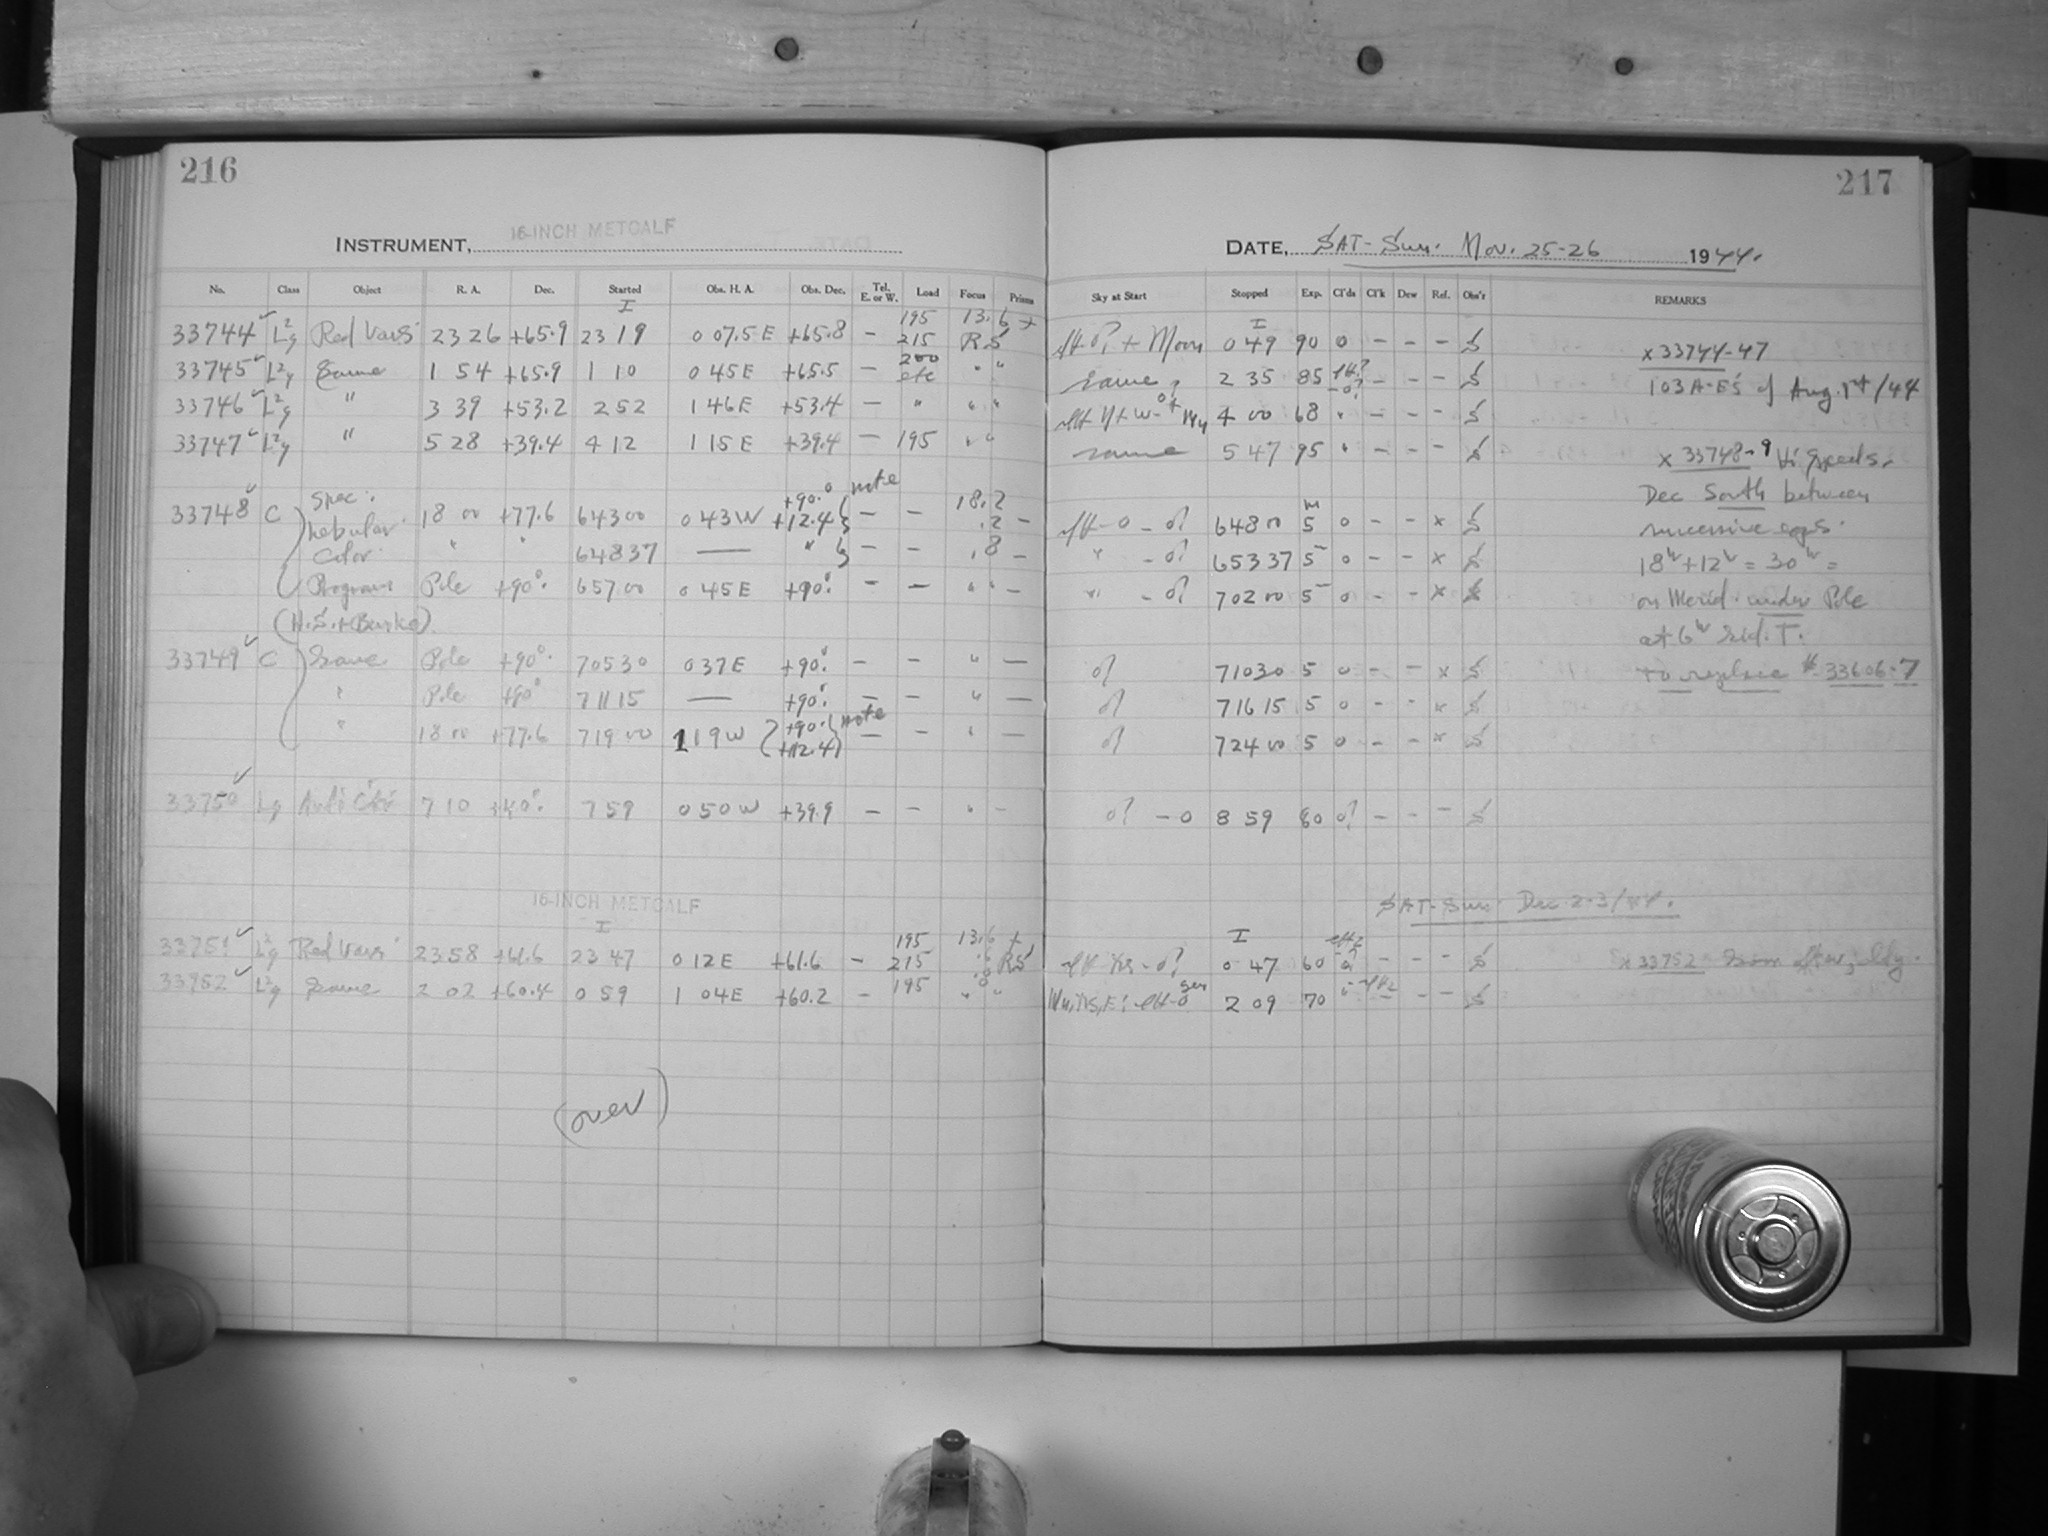 216
INSTRUMENT, 16-INCH METCALF
No. Class Object R. A. Dec. Started Obs. H. A. Obs. Dec. Tel. E. or W. Load Focus Prisms
I
33744 L2g Red Vars 23 26 +65.9 23 19 0 07.5 E +65.8 – 195 215 13.6 + RS
33745 L2g Same 1 54 +65.9 1 10 0 45 E +65.5 – 200 etc " "
33746 L2g " 3 39 +53.2 2 52 1 46 E +53.4 – " " "
33747 L2g " 5 28 +39.4 4 12 1 15 E +39.4 – 195 " "
33748 C Spec. Nebular 18 00 +77.6 6 43 00 0 43 W +90.° +12.4 note – – 18.2 .2 –
Color " " 6 48 37 — " – – .8 –
Program Pole +90° 6 57 00 0 45 E +90° – – " " –
(H.S. + Burke)
33749 C Same Pole +90° 7 05 30 0 37 E +90° – – " –
" Pole +90° 7 11 15 — +90° – – " –
" 18 00 +77.6 7 19 00 1 19 W +90° +112.4 note – – " –
33750 Lg 7 10 +40° 7 59 0 50 W +39.9 – – " –
16-INCH METCALF
I
33751 L2g Red Vars 23 58 +61.6 23 47 0 12 E +61.6 – 195 215 13.6 + RS
33752 L2g Same 2 02 +60.4 0 59 1 04 E +60.2 – 195 " "
(over)
217
DATE, SAT-Sun. Nov. 25-26 1944.
Sky at Start Stopped Exp. Cl'ds Cl'k Dew Ref. Obs'r REMARKS
I
+ Moon 0 49 90 0 – – – S
same 2 35 85 – – – S
4 00 68 " – – – S
same 5 47 95 " – – – S
6 48 00 5m 0 – – x S
" - 0? 6 53 37 5 0 – – x S
" - 0? 7 02 00 5 0 – – x S
0? 7 10 30 5 0 – – x S
0? 7 16 15 5 0 – – x S
0? 7 24 00 5 0 – – x S
0? - 0 8 59 60 0? – – – S
x 33744-47
103A-E's of Aug. 1st/44
x 33748-9 Hi Speeds.
Dec South between
successive exps.
18h + 12h = 30h =
on Merid. under Pole
at 6h Sid. T.
to replace # 33606-7
SAT-Sun Dec 2-3/44.
I
0 47 60 – – – S
2 09 70 – – – S
x 33752